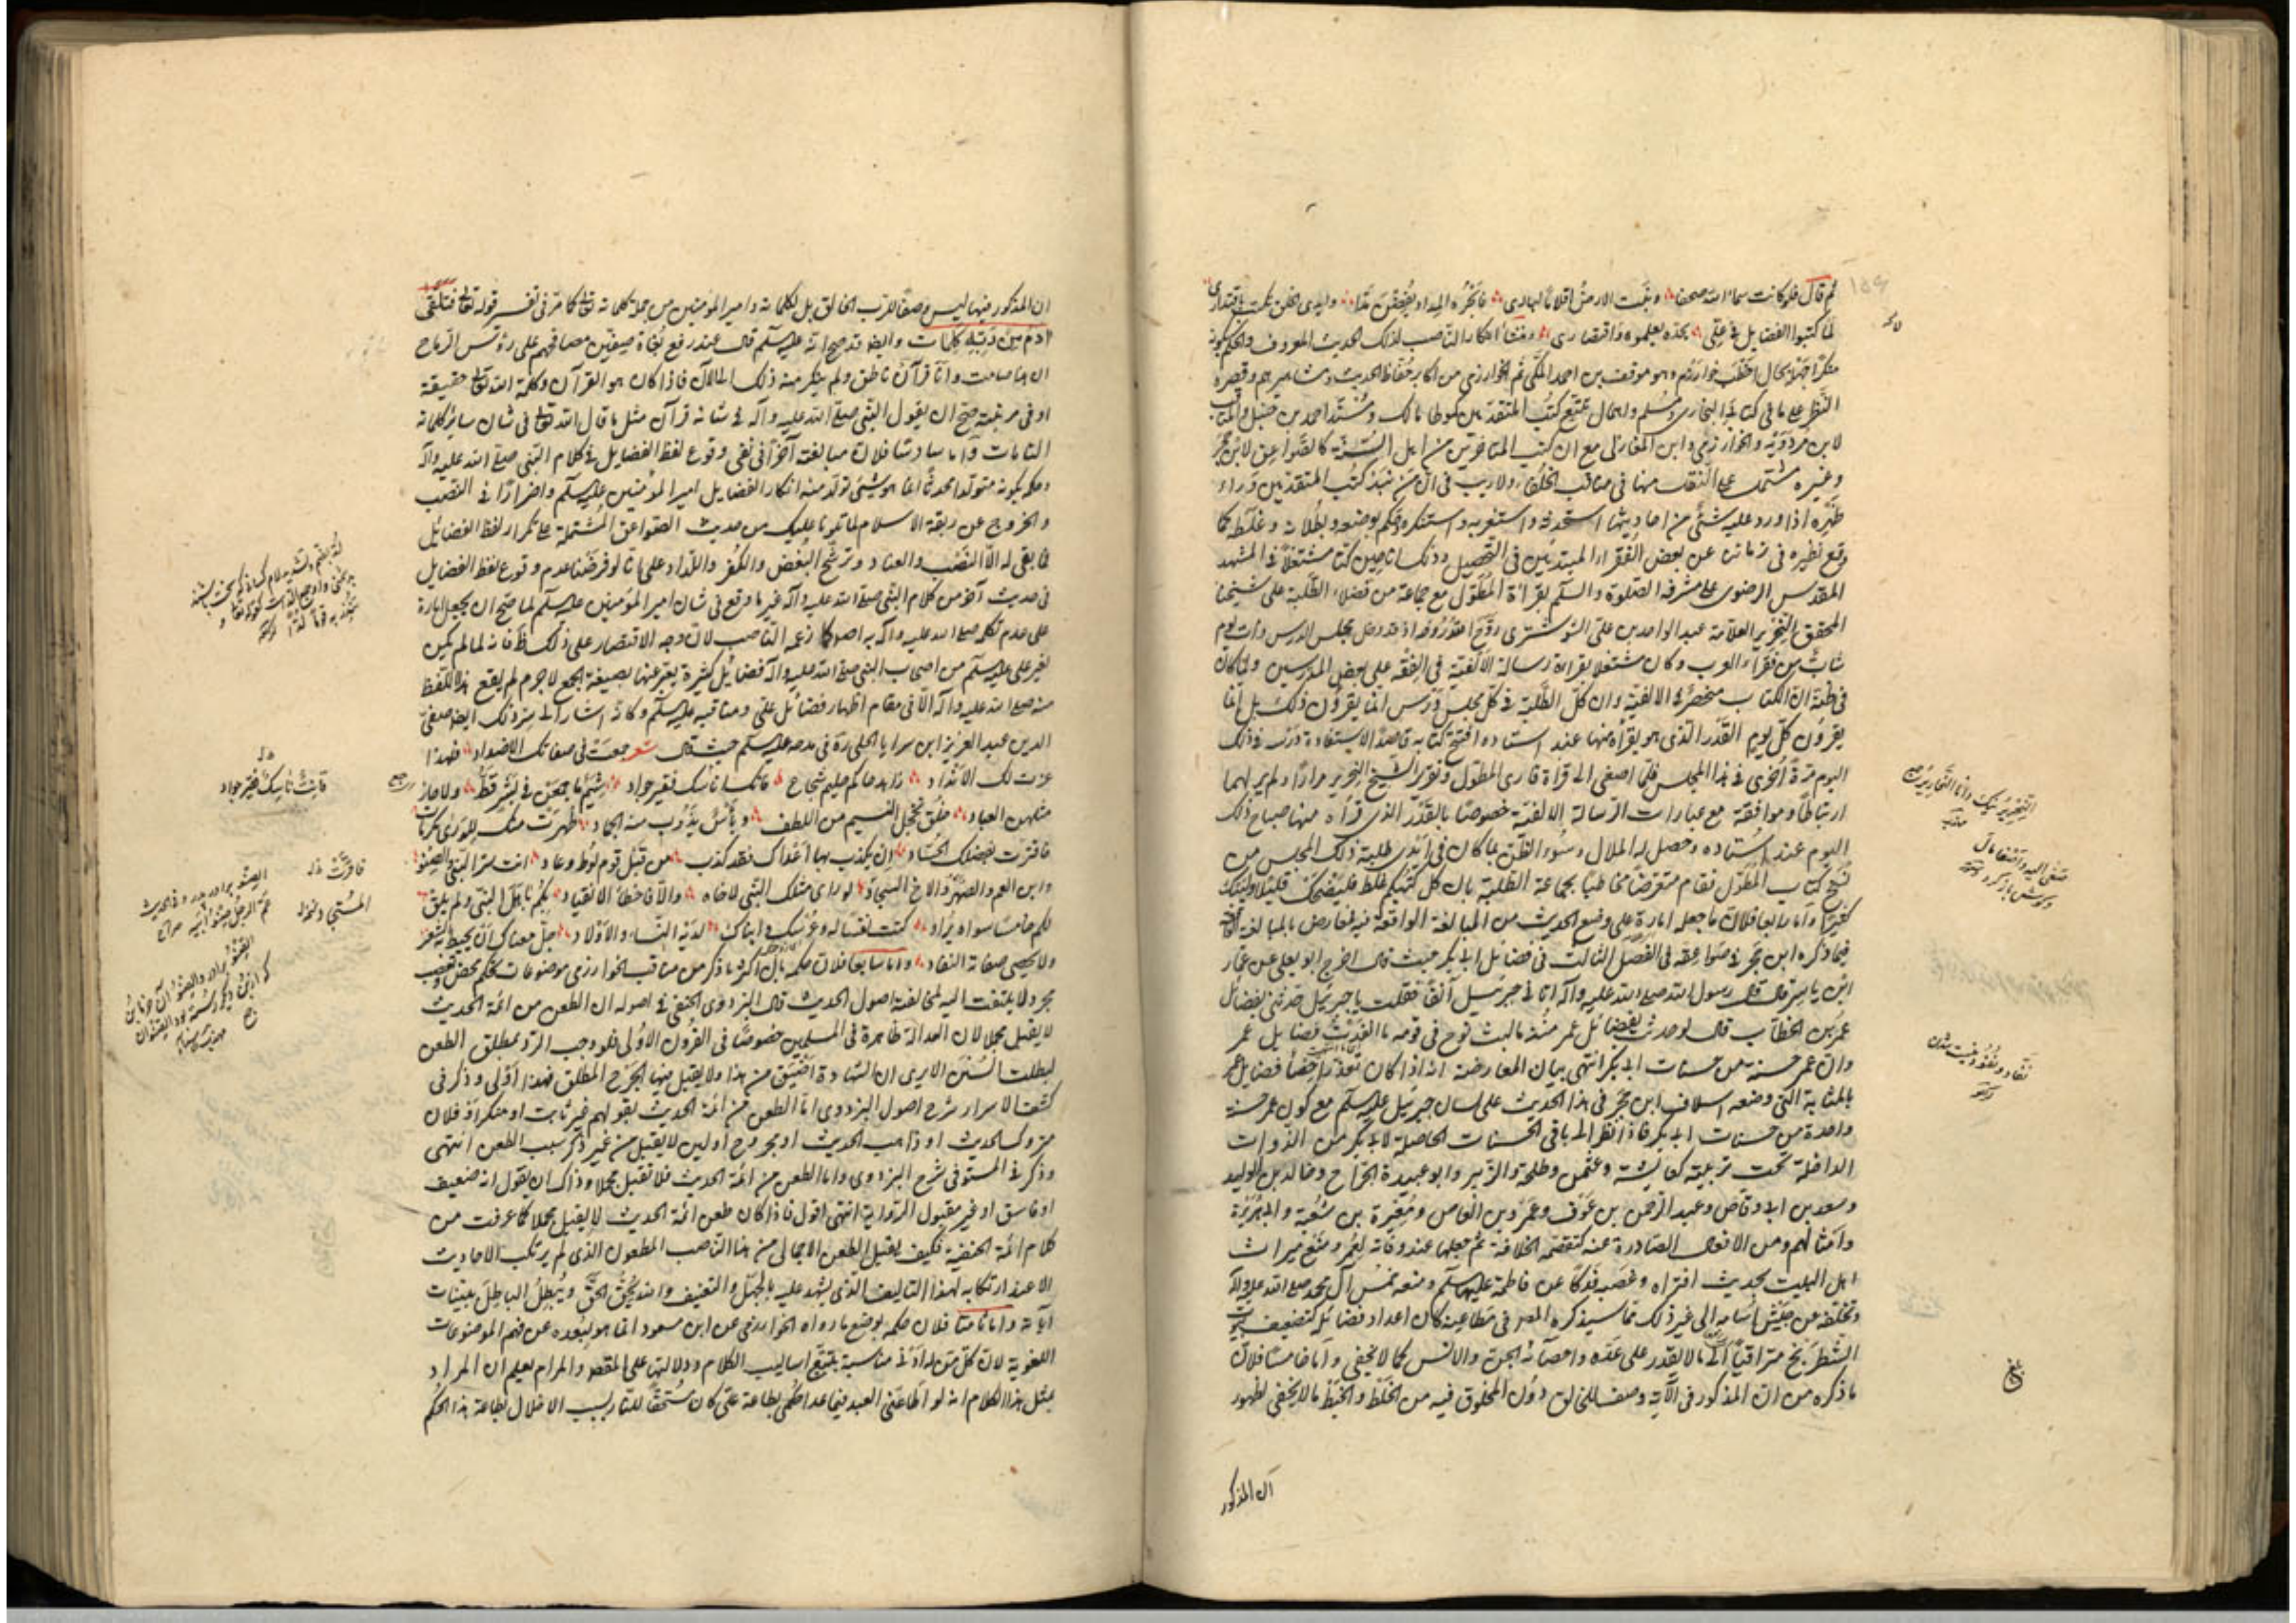 ثم قال فلو كانت سماء الله صحفا ونبت الارض اقلاما لباري فابحره المداد
لما كتبوا الفضايل في علي بحده يعلموه واقتصاري ومنشأ انكار الناصب لذلك الحديث المعروف والحكم بكونه
منكرا جهله بحال اخطب خوارزم وهو موفق بن احمد المكي ثم الخوارزمي من اكابر حفاظ الحديث ومشاهيرهم وقصره
النظر على ما في كتابي البخاري ومسلم واهمال تتبع كتب المتقدمين كموطا مالك ومسند احمد بن حنبل والمناقب
لابن مردويه والخوارزمي وابن المغازلي مع ان كتب المتاخرين من اهل السنة كالصواعق لابن حجر
وغيره مشتمل على النقل منها في مناقب الخلفاء ولا ريب في ان من نبذ كتب المتقدمين وراء
ظهره اذا ورد عليه شئ من احاديثها استحدثه واستغربه واستنكره وحكم بوضعه وبطلانه وغلطه كما
وقع نظيره في زماننا عن بعض الفقراء المبتدئين في التحصيل وذلك انا حين كنا مشتغلا في المشهد
المقدس الرضوي على مشرفه الصلوة والسلم بقراءة المطول مع جماعة من فضلاء الطلبة على شيخنا
المحقق النحرير العلامة عبد الواحد بن علي الشوشتري روح الله روحه اذ قد دخل مجلس الدرس ذات يوم
شاب من فقراء العرب وكان مشتغلا بقراءة رسالة الالفية في الفقه على بعض المدرسين ولما كان
في ظنه ان الكتاب منحصر في الالفية وان كل الطلبة في كل مجلس ودرس انما يقرؤن ذلك بل انما
يقرؤن كل يوم القدر الذي هو يقرأه منها عند استاده افتح كتابه قاصدا لاستفادة درسه في ذلك
اليوم مرة اخرى في هذا المجلس فلما اصغى الى قراة قارى المطول وتقرير الشيخ النحرير مرارا ولم ير لهما
ارتباطا وموافقة مع عبارات الرسالة الالفية خصوصا بالقدر الذي قرأه منها صباح ذلك
اليوم عند استاده وحصل له الملال وسوء الظن بما كان في ايدي طلبة ذلك المجلس من
نسخ كتاب المطول فقام متعرضا مخاطبا بجماعة الطلبة بان كل كتبكم غلط فليضحك قليلا وليبك
كثيرا واما رابعا فلان ما جعله امارة على وضع الحديث من المبالغة الواقعة فيه معارض بالمبالغة
فيما ذكره ابن حجر في صواعقه في الفصل الثالث في فضائل ابي بكر حيث قال اخرج ابو يعلى عن عمار
ابن ياسر قال قال رسول الله صلى الله عليه وآله اتاني جبرئيل آنفا فقلت يا جبرئيل حدثني بفضائل
عمر بن الخطاب قال لو حدثتك بفضائل عمر منذ ما لبث نوح في قومه ما انفدت فضايل عمر
وان عمر حسنة من حسنات ابي بكر انتهى بيان المعارضة انه اذا كان تعذر احصا فضايل عمر
بالمثابة التي وضعه اسلاف ابن حجر في هذا الحديث على لسان جبرئيل عليه السلم مع كون عمر حسنة
واحدة من حسنات ابي بكر فاذا نظر الى باقي الحسنات الحاصلة لابي بكر من الذوات
الداخلة تحت تربيته كعايشة وعثمن وطلحة والزبير وابو عبيدة الجراح وخالد بن الوليد
وسعد بن ابي وقاص وعبد الرحمن بن عوف وعمرو بن العاص ومغيرة بن شعبة وابي هريرة
وامثالهم ومن الافعال الصادرة عنه كتقمصه الخلافة ثم جعلها عند وفاته لعمر ومنع ميراث
اهل البيت بحديث افتراه وغصبه فدكا عن فاطمة عليها السلم ومنعه خمس آل محمد صلى الله عليه وآله
وتخلفه عن جيش اسامه الى غير ذلك مما سيذكره المص في مطاعنه كان اعداد فضائله كتضعيف بيوت
الشطرنج متراقيا الى ما لا يقدر على عده واحصائه الجن والانس كما لا يخفى واما خامسا فلان
ما ذكره من ان المذكور في الآية وصف للخالق دون المخلوق فيه من الخلط والخبط ما لا يخفى لظهور
ان المذكور
ان المذكور فيها ليس وصفا للرب الخالق بل لكلماته وامير المؤمنين من جملة كلماته تعالى كما مر في تفسير قوله تعالى فتلقى
آدم من ربه كلمات وايضا قد صح انه عليه السلم قال عند رفع بغاة صفين مصاحفهم على رؤس الرماح
ان هذا صامت وانا قرآن ناطق ولم ينكر منه ذلك الى الآن فاذا كان هو القرآن وكلمة الله تعالى حقيقة
او في مرتبته صح ان يقول النبي صلى الله عليه وآله في شانه قرآن مثل ما قال الله تعالى في شان سائر كلماته
التامات واما سادسا فلان مبالغته آخرا في نفي وقوع لفظ الفضايل في كلام النبي صلى الله عليه وآله
وحكمه بكونه متولدا محدثا انما هو شئ تولد منه انكار الفضايل امير المؤمنين عليه السلم واصرارا في النصب
والخروج عن ربقة الاسلام لما تلونا عليك من حديث الصواعق المشتملة على تكرار لفظ الفضائل
فما بقي له الا النصب والعناد وترشح البغض والكفر واللداد على انا لو فرضنا عدم وقوع لفظ الفضايل
في حديث آخر من كلام النبي صلى الله عليه وآله غير ما وقع في شان امير المؤمنين عليه السلم لما صح ان يجعل امارة
على عدم تكلمه صلى الله عليه وآله به اصلا كما زعمه الناصب لان وجه الاقتصار على ذلك ظ فانه لما لم يكن
لغير علي عليه السلم من اصحاب النبي صلى الله عليه وآله فضائل كثيرة يعبر عنها بصيغة الجمع لا جرم لم يقع هذا اللفظ
منه صلى الله عليه وآله الا في مقام اظهار فضائل علي ومناقبه عليه السلم وكانه اشار الى ذلك ايضا صفي
الدين عبد العزيز ابن سرايا الحلي ره في مدحه عليه السلم حيث قال شعر جمعت في صفاتك الاضداد فلهذا
عزت لك الانداد زاهد حاكم حليم شجاع فاتك ناسك فقير جواد شيم ما جمعن في بشر قط ولا حاز
مثلهن العباد خلق يخجل النسيم من اللطف وبأس يذوب منه الجماد ظهرت منك للورى مكرمات
فاقرت بفضلك الحساد ان يكذب بها اعداك فقد كذب من قبل قوم لوط وعاد انت سر النبي والصنو
وابن العم والصهر والاخ السجاد لو راى مثلك النبي لاخاه والا فاخطأ الانتقاد بكم باهل النبي ولم يلق
لكم خامسا سواه يزاد كنت نفسا له وعرسك وابناك لديه النساء والاولاد جل معناك ان يحيط به الشعر
ولا يحصي صفاته النقاد واما سابعا فلان حكمه بان اكثر ما ذكر من مناقب الخوارزمي موضوعات تحكم محض وتعصب
مجرد لا يلتفت اليه لمخالفته اصول الحديث قال البزدوي الحنفي في اصوله ان الطعن من ائمة الحديث
لا يقبل مجملا لان العدالة ظاهرة في المسلمين خصوصا في القرون الاولى فلو وجب الرد بمطلق الطعن
لبطلت السنن الا يرى ان الشهادة اضيق من هذا ولا يقبل فيها الجرح المطلق فهذا اولى وذكر في
كشف الاسرار شرح اصول البزدوي اما الطعن من ائمة الحديث بقولهم غير ثابت او منكر او فلان
متروك الحديث او ذاهب الحديث او مجروح او لين لا يقبل من غير ذكر سبب الطعن انتهى
وذكر في المستوفى شرح البزدوي واما الطعن من ائمة الحديث فلا تقبل مجملا وذاك ان يقول انه ضعيف
او فاسق او غير مقبول الرواية انتهى اقول فاذا كان طعن ائمة الحديث لا يقبل مجملا كما عرفت من
كلام ائمة الحنفية فكيف يقبل الطعن الاجمالي من هذا الناصب المطعون الذي لم يرتكب الاحاديث
الا عند ارتكابه لهذا التاليف الذي يشهد عليه بالجهل والتعنيف والله يحق الحق ويبطل الباطل ببينات
آياته واما ثامنا فلان حكمه بوضع ما رواه الخوارزمي عن ابن مسعود انما هو لبعده عن فهم الموضوعات
اللغوية لان كل من له ادنى مناسبة بتتبع اساليب الكلام ودلالتها على المقصد والمرام يعلم ان المراد
بمثل هذا الكلام انه لو اطاعني العبد فيما عدا حكمي بطاعة علي كان مستحقا للنار بسبب الاخلال بطاعة هذا الحكم
قانت ناسك فقير جواد